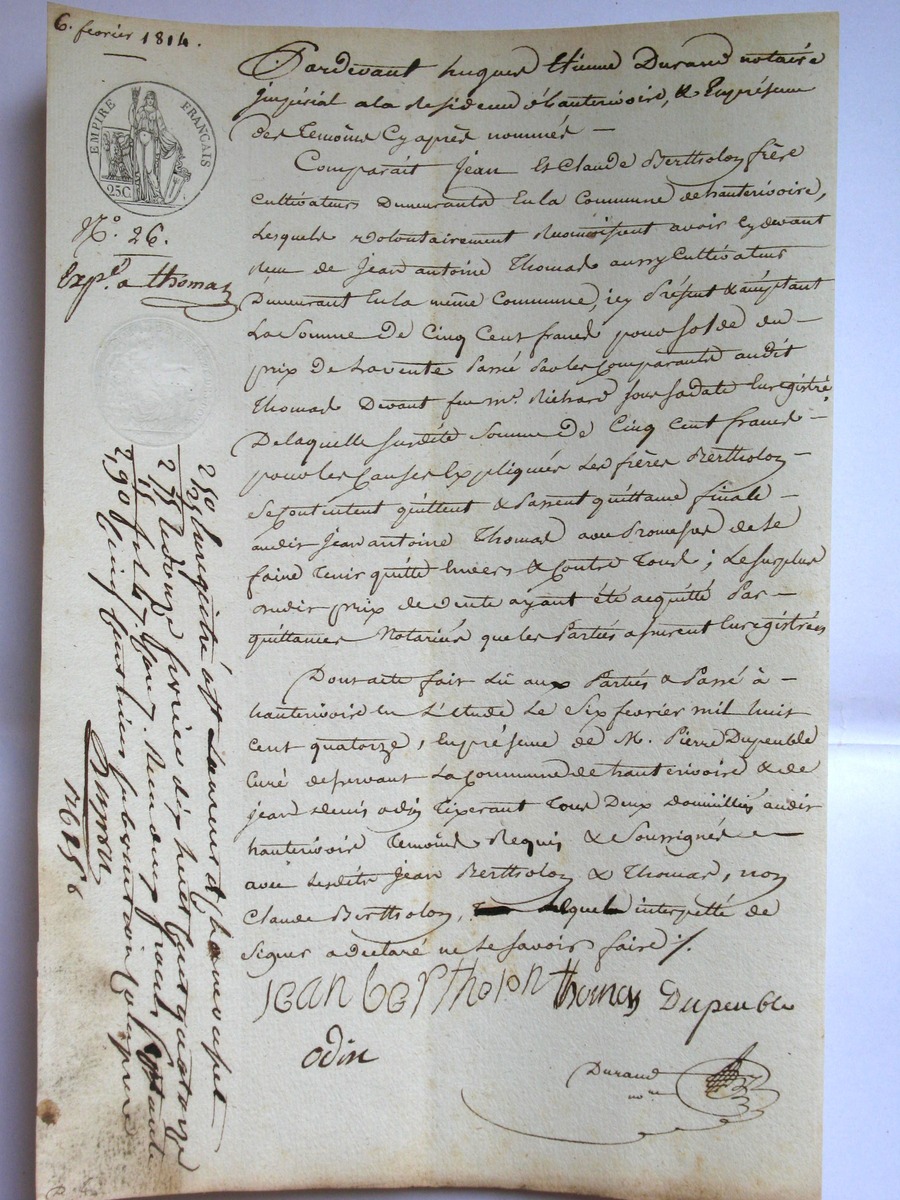 6. fevrier 1814.
EMPIRE FRANÇAIS
25C
N.º 26.
Exp.e a thomas
Pardevant hugues Etienne Durand notaire
jmpérial a la Residence d'hauterivoire, & En présence
des temoins Cy après nommés —
Comparait Jean Et Claude Bertholon frère
Cultivateurs Demeurants En la Commune de hauterivoire,
Lesquels volontairement Reconnoissent avoir cy devant
Recu de Jean antoine Thomas aussy Cultivateur
Demeurant En la même Commune, icy Présent & aceptant
La Somme De Cinq Cent francs pour solde du —
prix De La vente Passé Par les Comparants audit
Thomas Devant feu m.e Richard sous sa date Enregistré
De laquelle susdite Somme De Cinq Cent francs —
pour les Causes Expliquées Les frères Bertholon —
Se Contentent quittent & Passent quittance finale —
audit Jean antoine Thomas avec Promesse de le
faire tenir quitte Envers & Contre Tous ; Le surplus
dudit prix de vente ayant été acquitté Par —
quittances Notariées que les Parties assurent Enregistrées
Dont acte fait Lu aux Parties & Passé à —
hauterivoire En L'Etude Le Six fevrier mil huit
cent quatorze, En présence de M. Pierre Dupeuble
Curé deservant La Commune de hauterivoire & de
jean denis odin Tixerant Tous Deux domiciliés audit
hauterivoire Temoins Requis & Soussignés —
avec Lesdits Jean Bertholon & Thomas, non
Claude Bertholon, Lequel interpellé de
Signer a declaré ne Le Savoir faire ./.
jean bertholon thomas Dupeuble
odin
Durand
no.re
2,50 Enregistré à St Laurent de chamousset
25
2,75 Le douze fevrier dix huit Cent quatorze
15
2,90